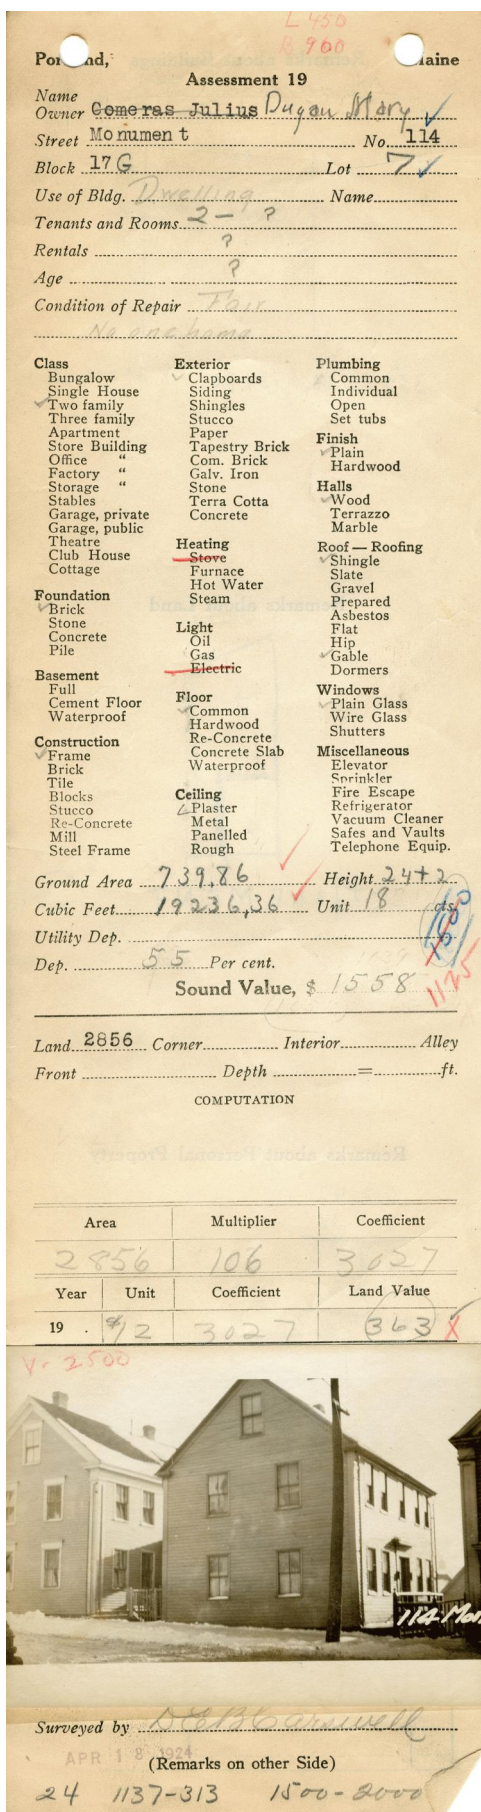 L 450
B 900
Portland, Maine
Assessment 19
Name
Owner Comeras Julius Dugan Mary
Street Monument No. 114
Block 17 G Lot 7
Use of Bldg. Dwelling Name
Tenants and Rooms 2 - ?
Rentals ?
Age ?
Condition of Repair Fair
No one home
Class
Bungalow
Single House
Two family
Three family
Apartment
Store Building
Office "
Factory "
Storage "
Stables
Garage, private
Garage, public
Theatre
Club House
Cottage
Foundation
Brick
Stone
Concrete
Pile
Basement
Full
Cement Floor
Waterproof
Construction
Frame
Brick
Tile
Blocks
Stucco
Re-Concrete
Mill
Steel Frame
Exterior
Clapboards
Siding
Shingles
Stucco
Paper
Tapestry Brick
Com. Brick
Galv. Iron
Stone
Terra Cotta
Concrete
Heating
Stove
Furnace
Hot Water
Steam
Light
Oil
Gas
Electric
Floor
Common
Hardwood
Re-Concrete
Concrete Slab
Waterproof
Ceiling
Plaster
Metal
Panelled
Rough
Plumbing
Common
Individual
Open
Set tubs
Finish
Plain
Hardwood
Halls
Wood
Terrazzo
Marble
Roof — Roofing
Shingle
Slate
Gravel
Prepared
Asbestos
Flat
Hip
Gable
Dormers
Windows
Plain Glass
Wire Glass
Shutters
Miscellaneous
Elevator
Sprinkler
Fire Escape
Refrigerator
Vacuum Cleaner
Safes and Vaults
Telephone Equip.
Ground Area 739.86 Height 24+2
Cubic Feet 19236,36 Unit 18 cts.
Utility Dep.
Dep. 55 Per cent.
1125
Sound Value, $ 1558
Land 2856 Corner Interior Alley
Front Depth = ft.
COMPUTATION
Area Multiplier Coefficient
2856 106 3027
Year Unit Coefficient Land Value
19 . $12 3027 363 X
V- 2500
114 Mon
Surveyed by D E B Carswell
APR 18 1924
(Remarks on other Side)
24 1137-313 1500-2000